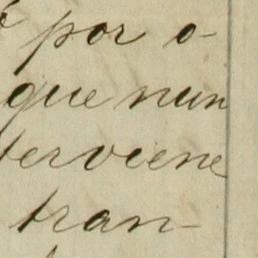 por o-
que nun
terviene
tran-